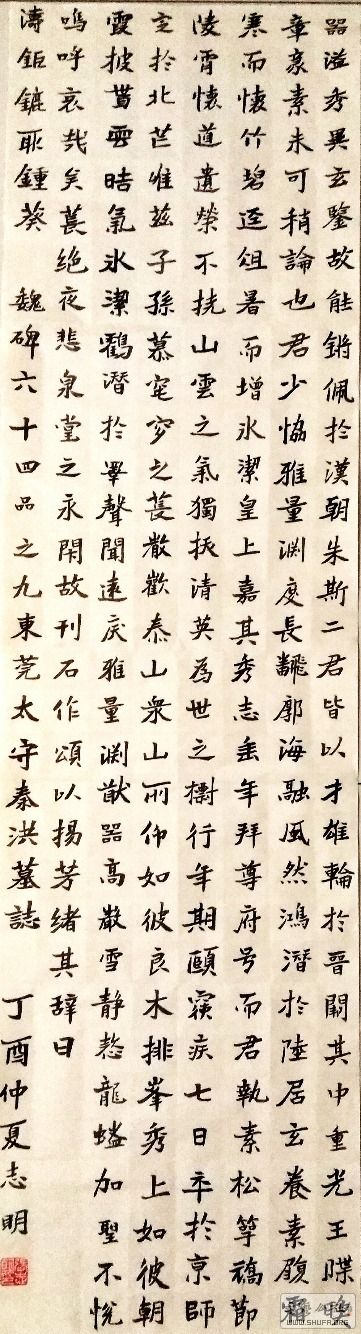 器溢秀異玄鑒故能鏘佩於漢朝朱斯二君皆以才雄輪於晉闕其中重光王牒晚
章豪素未可稍論也君少協雅量淵度長翻廓海融風然鴻潛於陸居玄養素履霜
寒而懷竹碧逕俎暑而增氷潔皇上嘉其秀志垂年拜尊府号而君執素松筠矯節
陵霄懷道遺榮不撓山雲之氣獨挾清英為世之行年期頤寢疾七日卒於京師
定於北芒惟茲子孫慕窀穸之萇散歡泰山衆山所仰如彼良木排峯秀上如彼朝
霞披雲晧氣氷潔鸖潛於畢聲聞遠戾雅量淵猷器高嚴雪静龍蟠加聖不悅
嗚呼哀哉矣萇絶夜悲泉堂之永閇故刊石作頌以揚芳緒其辞曰
濤鉅鏕耿鍾葵 魏碑六十四品之九東莞太守秦洪墓誌 丁酉仲夏志明